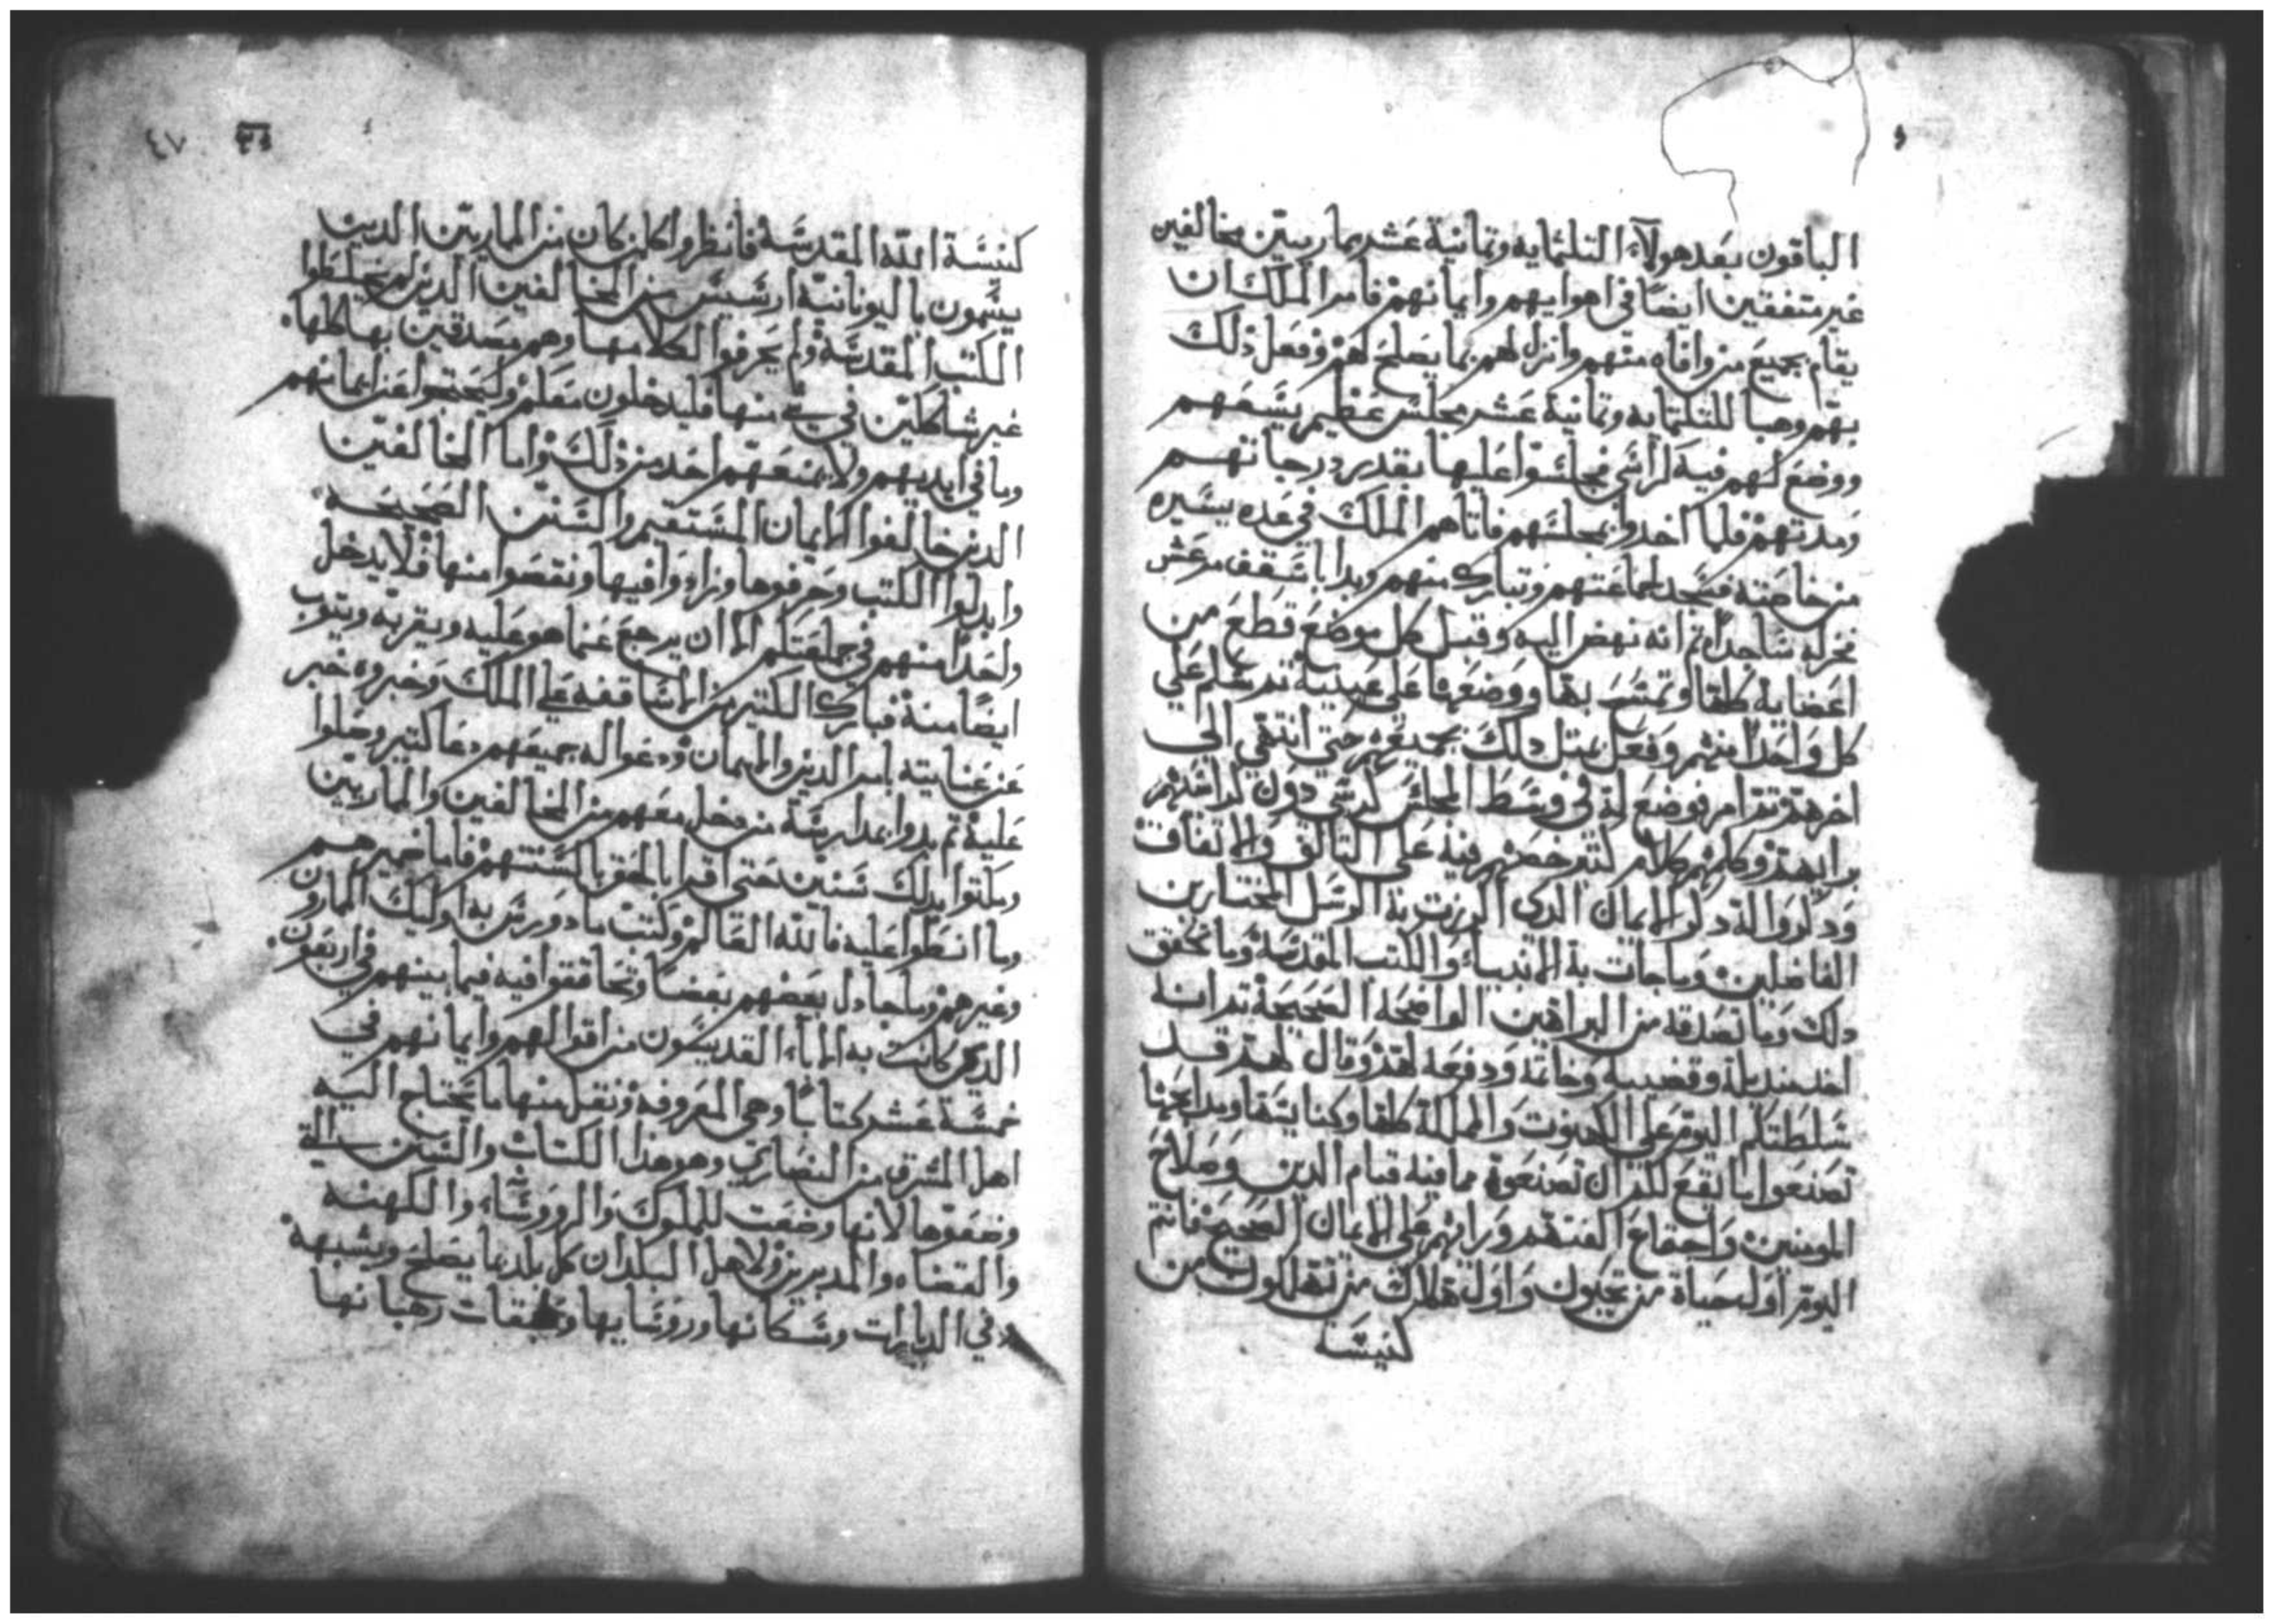 الباقون بعد هولآء التلثمايه وثمانية عشر ماريين مخالفين
غير متفقين ايضًا في اهوايهم وايمانهم فامر الملك ان
يقام بجميع من وافاه منهم وانزل لهم بما يصلح لهم وفعل ذلك
بهم وهيا للتلتمايه وثمانية عشر مجلس عظيم يسعهم
ووضع لهم فيه كراسي فجلسوا عليها بقدر درجاتهم
ومدتهم فلما اخدوا مجلسهم فاتاهم الملك في عده يسيره
من خاصته فسجد لجماعتهم وتبارك منهم وبدا باسقف مرعش
فخر له ساجدًا تم انه نهض اليه وقبل كل موضع قطع من
اعضايه كلها وتمسح بها ووضعها على عينيه تم سلم علي
كل واحدًا منهم وفعل مثل دلك بجميعهم حتى انتهى الى
اخرهم تم امر فوضع له في وسط المجلس كرسي دون كراسيهم
برايهم وكلمهم كلام كتير حضهم فيه على التالف والاتفاق
ودكروا له دكر الايمان الدي اكرزت به الرسل المختارين
الفاضلين وماجات به الانبياء والكتب المقدسة وما تحقق
دلك وما تصدقه من البراهين الواضحه الصحيحة تم انه
اخد منديله وقضيبه وخاتمه ودفعه لهم وقال لهم قد
سلطتكم اليوم على الكهنوت والمملكة كلها وكنايسها ومدايحها
تصنعوا ما ينبغ لكم ان تصنعوه مما فيه قيام الدين وصلاح
المومنين واجتماع الفتهم ورايهم على الايمان الصحيح فانتم
اليوم اول حياة من تحيون واول هلاك من تهلكون من
كنيسة
٤٧
كنيسة الله المقدسة فانظروا كلمن كان من الماريين الدين
يسمون باليونانية ارسيس من المخالفين الدين لم يخلطوا
الكتب المقدسة ولم يحرفوا الكلام منها وهم مصدقين بها كلها
غير شاكين في شي منها فليدخلون معكم وليحتجوا عن ايمانهم
وما في ايديهم ولا يمنعهم احد من ذلك واما المخالفين
الدين خالفوا الايمان المستقيم والسنن الصحيحه
وابدلوا الكتب وحرفوها وزادوا فيها ونقصوا منها فلا يدخل
واحدًا منهم في جماعتكم الا ان يرجع عما هو عليه ويقر به ويتوب
ايضًا منه فبارك الكتير من الاساقفه علي الملك وخبروه خبر
عن عنايته بامر الدين والايمان ودعوا له جميعهم دعا كتير وحلوا
عليه تم بدوا بمدارسة من دخل معهم من المخالفين والماريين
ومكتوا بدلك سنين حتى اقروا بالحق بالسنتهم فاما ضميرهم
وما انطوا عليه فالله العالم وكتب ما دورس به اوليك المارون
وغيرهم وما جادل بعضهم بعضًا وتحاققوا فيه فيما بينهم في اربعون
الدي كانت به الاباء القديسون من اقوالهم وايمانهم في
خمسة عشر كتابًا وهي المعروفه ونقل منها ما يحتاج اليه
اهل المشرق من النصارى وهو هذا الكتاب والسنن
وضعوها لانها وضعت للملوك والروسآء والكهنه
والقضاه والمدبرين ولاهل البلدان كل بلد بما يصلح ويشبهه
وفي الديارات وسكانها وروسايها وطبقات رهبانها